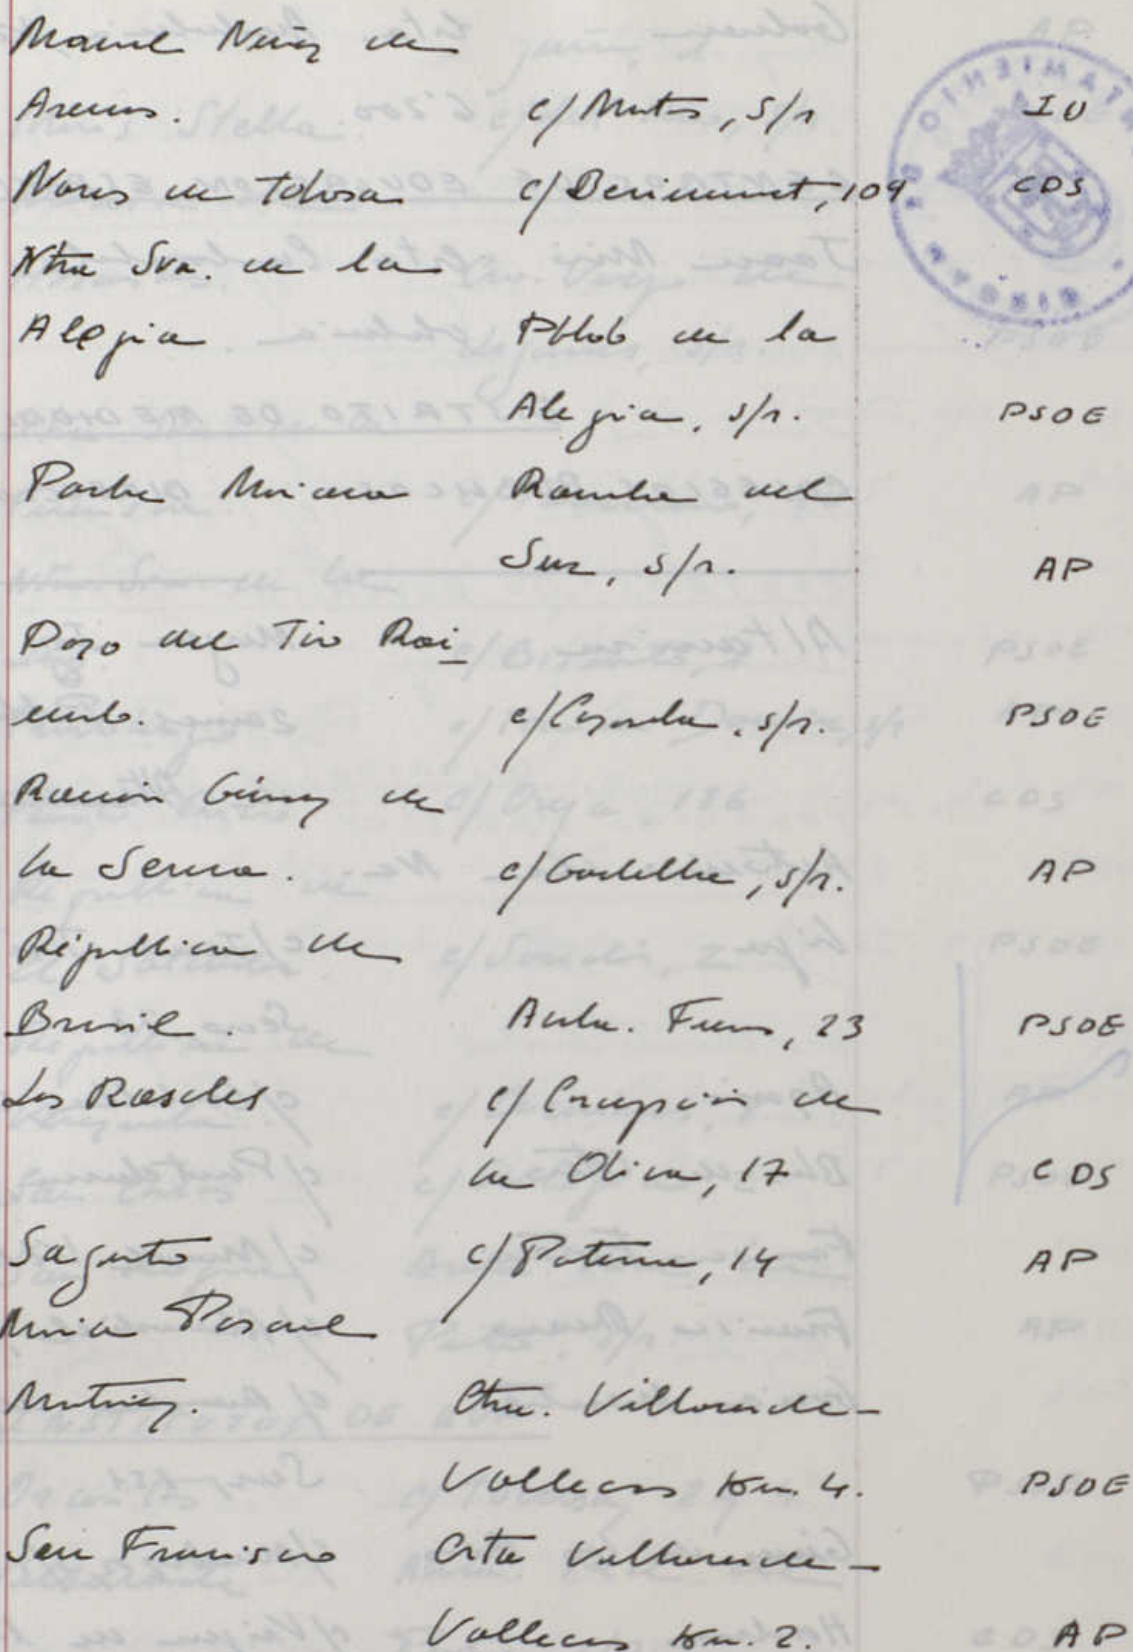 Manuel Núñez de
Arenas. c/ Montes, s/n IU
Navas de Tolosa c/ Benimamet, 109 CDS
Ntra Sra. de la
Alegria Pbldo de la
Alegria, s/n. PSOE
Padre Mariana Ronda del
Sur, s/n. AP
Pozo del Tio Rai-
mundo. c/ Cazorla, s/n. PSOE
Ramón Gómez de
la Serna. c/ Godella, s/n. AP
República de
Brasil. Avda. Fueros, 23 PSOE
Los Rosales c/ Concepción de
la Oliva, 17 CDS
Sagunto c/ Paterna, 14 AP
María Pascual
Martínez. Ctra. Villaverde-
Vallecas Km. 4. PSOE
San Francisco Crta Villaverde-
Vallecas Km. 2. AP